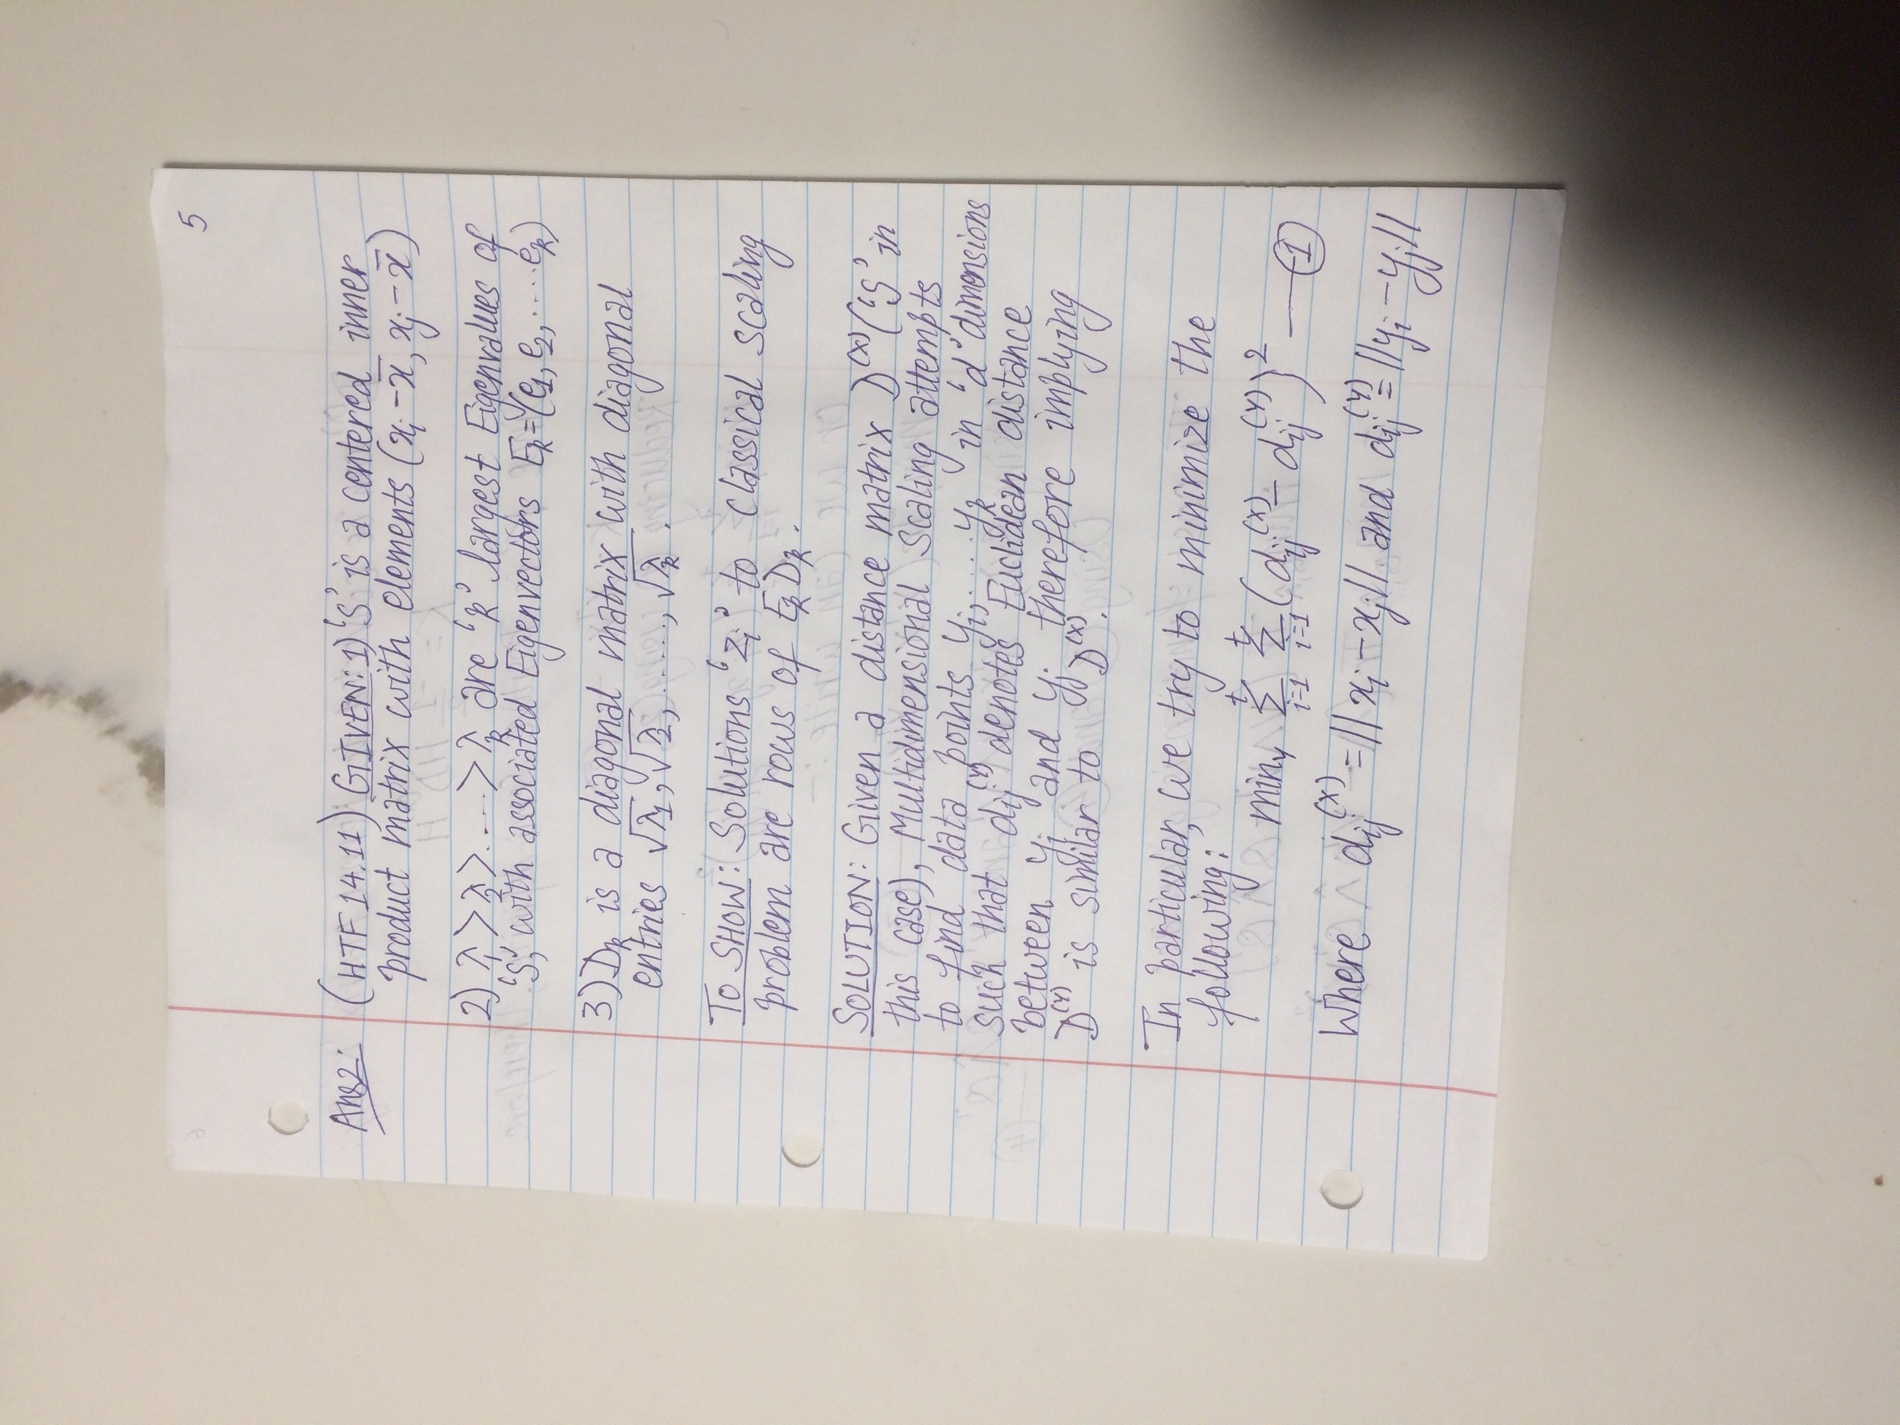 5
Ans2: (HTF 14.11) GIVEN: 1) 'S' is a centered inner
product matrix with elements ⟨xi - x̄, xj - x̄⟩
2) λ1 > λ2 > ..... > λk are 'k' largest Eigenvalues of
'S', with associated Eigenvectors Ek = (e1, e2, .... ek)
3) Dk is a diagonal matrix with diagonal
entries √λ1, √λ2, ......, √λk.
TO SHOW: Solutions 'zi' to classical scaling
problem are rows of EkDk.
SOLUTION: Given a distance matrix D(X) ('S' in
this case), Multidimensional Scaling attempts
to find data points yi, .... yk in 'd' dimensions
such that dij(Y) denotes Euclidean distance
between yi and yj therefore implying
D(Y) is similar to D(X).
In particular, we try to minimize the
following:
minY Σ(i=1 to t) Σ(i=1 to t) (dij(X) - dij(Y))² — ①
Where dij(X) = ||xi - xj|| and dij(Y) = ||yi - yj||